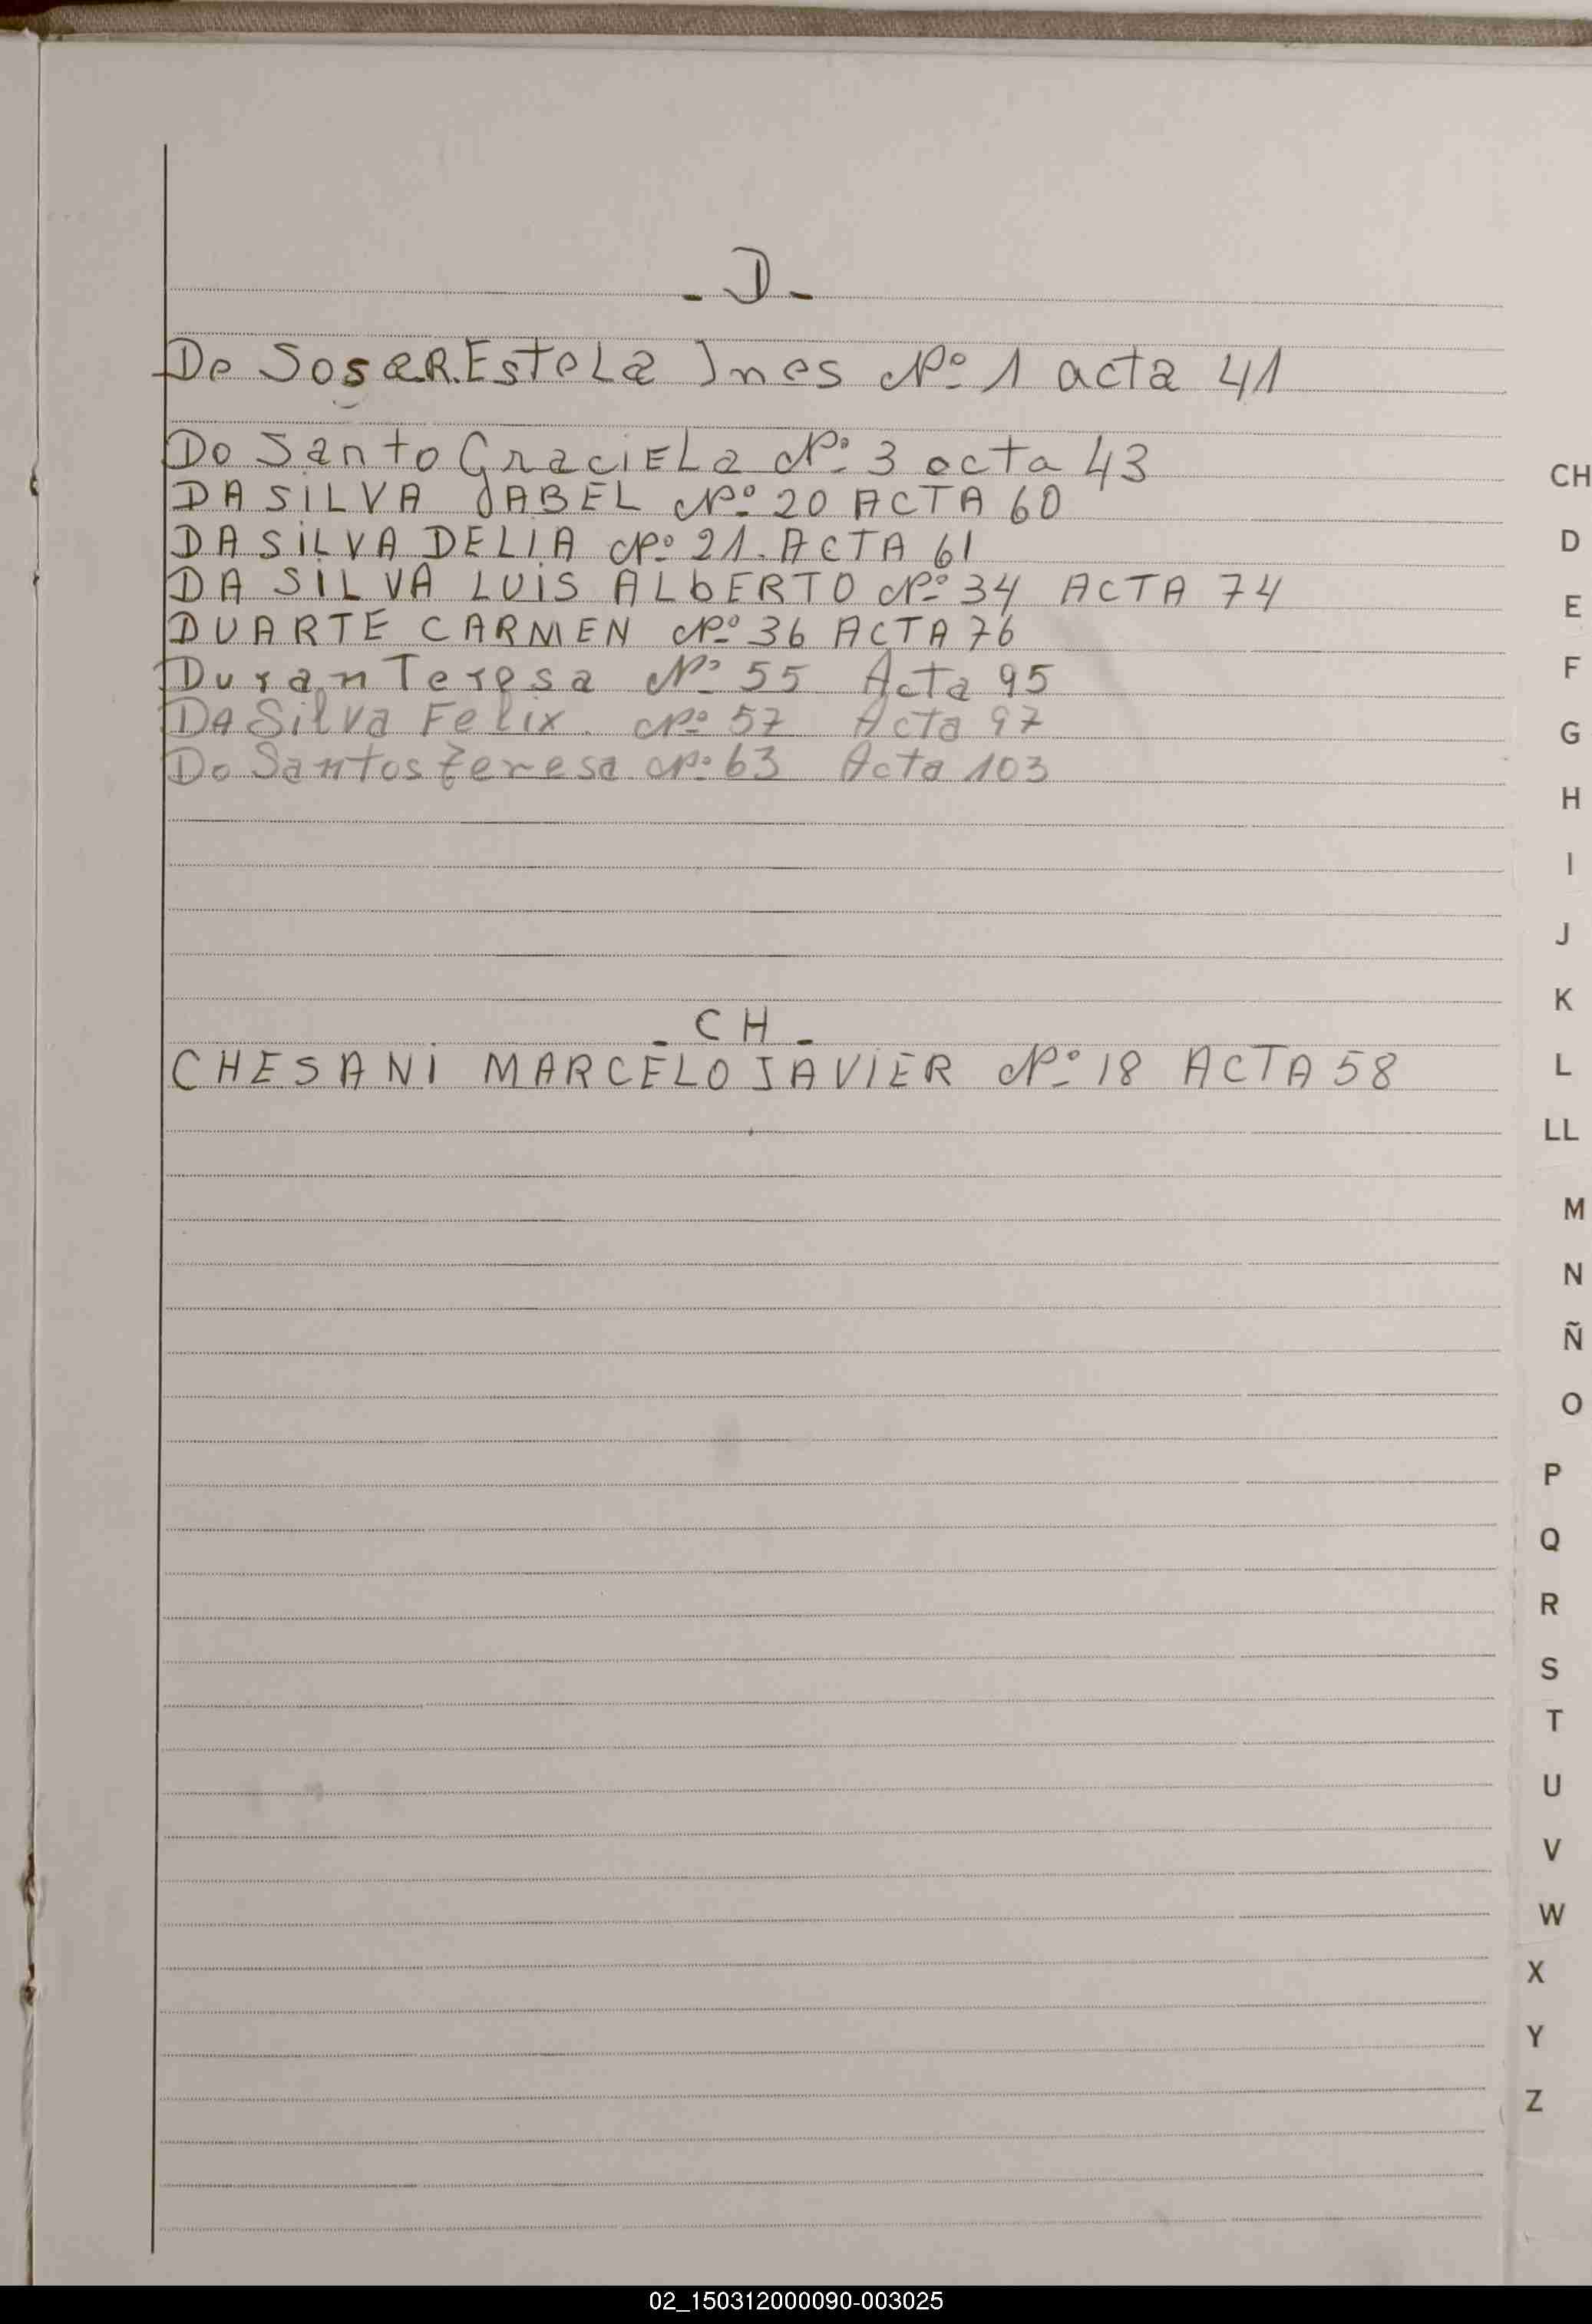 - D -
De Sosa R. Estela Ines Nº 1 acta 41
Do Santo Graciela Nº 3 acta 43
DA SILVA JABEL Nº 20 ACTA 60
DA SILVA DELIA Nº 21. ACTA 61
DA SILVA LUIS ALbERTO Nº 34 ACTA 74
DUARTE CARMEN Nº 36 ACTA 76
Duran Teresa Nº 55 Acta 95
DA Silva Felix. Nº 57 Acta 97
Do Santos Teresa Nº 63 Acta 103
- CH -
CHESANI MARCELO JAVIER Nº 18 ACTA 58
CH
D
E
F
G
H
I
J
K
L
LL
M
N
Ñ
O
P
Q
R
S
T
U
V
W
X
Y
Z
02_150312000090-003025